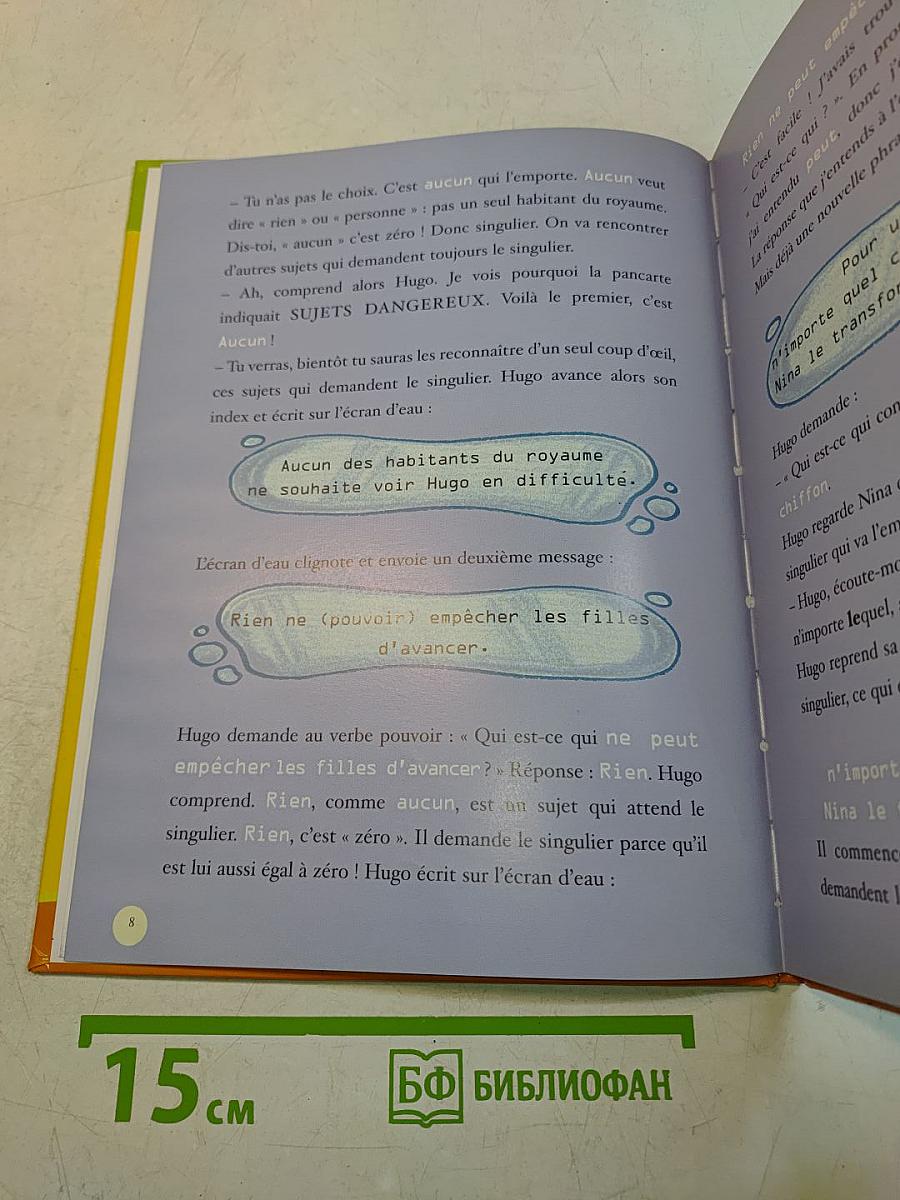 – Tu n'as pas le choix. C'est aucun qui l'emporte. Aucun veut
dire « rien » ou « personne » : pas un seul habitant du royaume.
Dis-toi, « aucun » c'est zéro ! Donc singulier. On va rencontrer
d'autres sujets qui demandent toujours le singulier.
– Ah, comprend alors Hugo. Je vois pourquoi la pancarte
indiquait SUJETS DANGEREUX. Voilà le premier, c'est
Aucun !
– Tu verras, bientôt tu sauras les reconnaître d'un seul coup d'œil,
ces sujets qui demandent le singulier. Hugo avance alors son
index et écrit sur l'écran d'eau :
Aucun des habitants du royaume
ne souhaite voir Hugo en difficulté.
L'écran d'eau clignote et envoie un deuxième message :
Rien ne (pouvoir) empêcher les filles
d'avancer.
Hugo demande au verbe pouvoir : « Qui est-ce qui ne peut
empêcher les filles d'avancer ? » Réponse : Rien. Hugo
comprend. Rien, comme aucun, est un sujet qui attend le
singulier. Rien, c'est « zéro ». Il demande le singulier parce qu'il
est lui aussi égal à zéro ! Hugo écrit sur l'écran d'eau :
8
Rien ne peut
– C'est facile ! J'avais
" Qui est-ce qui ? ". En
j'ai entendu peut, donc
La réponse que j'entends à
Mais déjà une nouvelle
Pour
n'importe quel
Nina le
Hugo demande :
– « Qui est-ce qui
chiffon.
Hugo regarde Nina
singulier qui va
– Hugo,
n'importe lequel,
Hugo reprend sa
singulier, ce qui
Nina le
Il
demandent
15 см
БФ БИБЛИОФАН